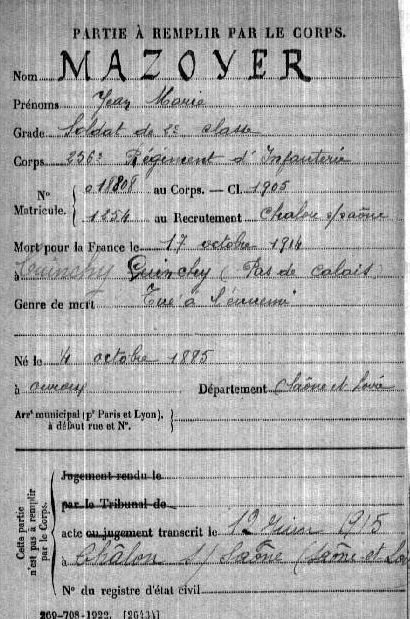 PARTIE À REMPLIR PAR LE CORPS.
Nom MAZOYER
Prénoms Jean Marie
Grade Soldat de 2e classe
Corps 256e Régiment d'Infanterie
N° Matricule. { 018808 au Corps. — Cl. 1905
1254 au Recrutement Chalon s/saône
Mort pour la France le 17 octobre 1914
à Cuinchy Guinchy (Pas de calais
Genre de mort Tué à l'ennemi
Né le 4 octobre 1885
à ouroux Département Saône et Loire
Arrt municipal (pr Paris et Lyon), à défaut rue et N°.
Cette partie n'est pas à remplir par le Corps.
Jugement rendu le
par le Tribunal de
acte ou jugement transcrit le 12 1915
à Chalon s/ Saône (Saône et Loi
N° du registre d'état civil
269-708-1922. [26434]